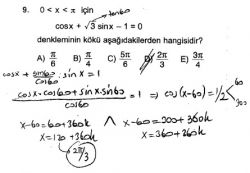 9. 0 < x < π için
tan60
cosx + √3 sinx – 1 = 0
denkleminin kökü aşağıdakilerden hangisidir?
A) π/6 B) π/4 C) 5π/6 D) 2π/3 E) 3π/4
cosx + sin60/cos60 . sinx = 1
cosx.cos60 + sinx.sin60 / cos60 = 1 ⇒ cos(x-60) = 1/2 < 60
300
x-60 = 60 + 360k ∧ x-60 = 300 + 360k
x = 120 + 360k x = 360 + 360k
2π/3